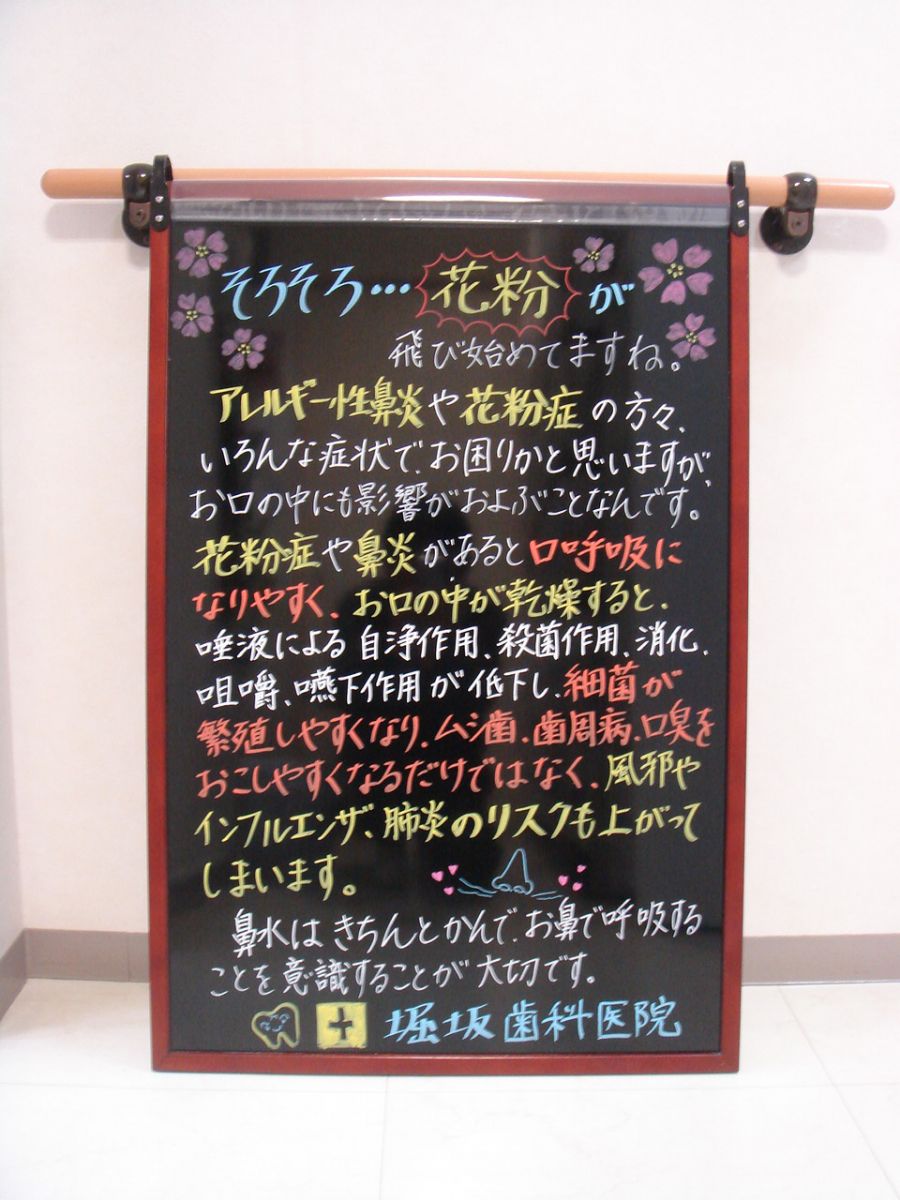 そろそろ… 花粉が
飛び始めてますね。
アレルギー性鼻炎や花粉症の方々、
いろんな症状で、お困りかと思いますが、
お口の中にも影響がおよぶことなんです。
花粉症や鼻炎があると口呼吸に
なりやすく、お口の中が乾燥すると、
唾液による自浄作用、殺菌作用、消化、
咀嚼、嚥下作用が低下し、細菌が
繁殖しやすくなり、ムシ歯、歯周病、口臭を
おこしやすくなるだけではなく、風邪や
インフルエンザ、肺炎のリスクも上がって
しまいます。
鼻水はきちんとかんで、お鼻で呼吸する
ことを意識することが大切です。
堀坂歯科医院